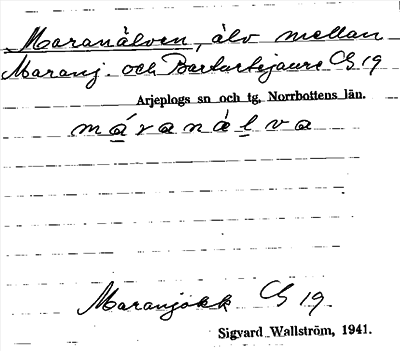 Maranälven, älv mellan
Maranj. och Partartejaure Cg 19
Arjeplogs sn och tg, Norrbottens län.
máranälva
Maranjåkk Cg 19
Sigvard Wallström, 1941.